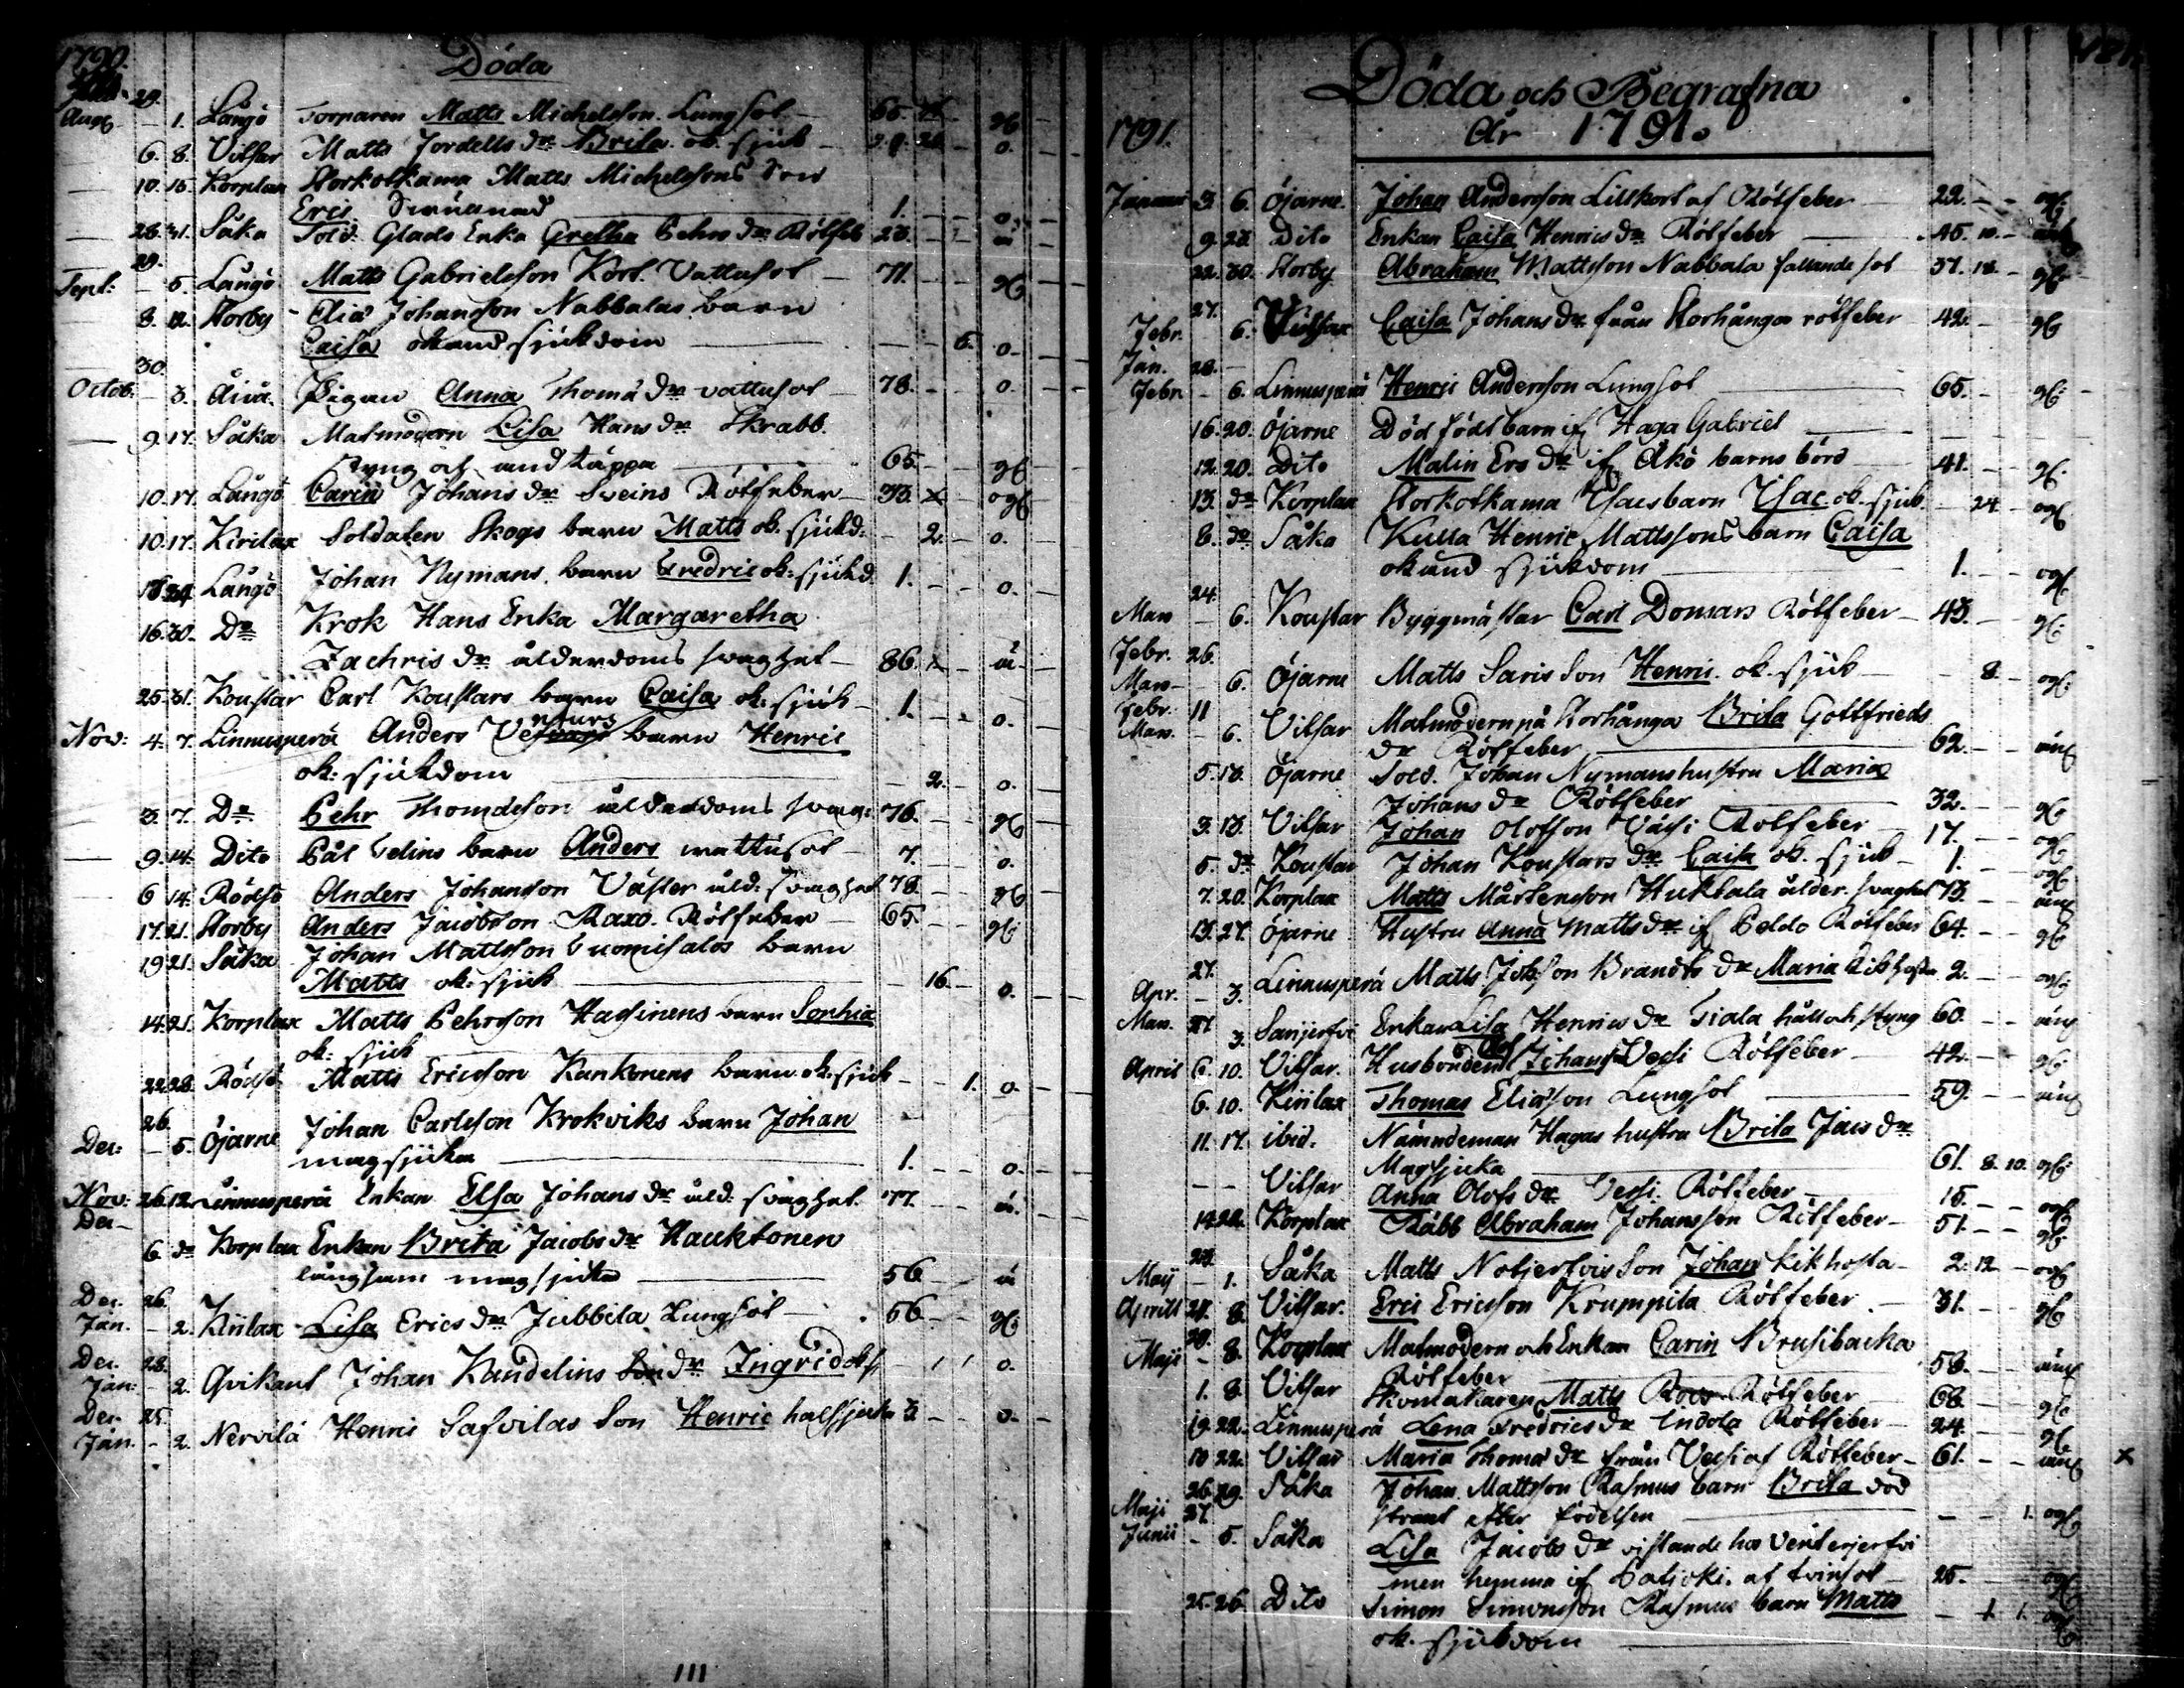 1790.
Döda
29.
Aug — 1. Långö Torparen Matts Michelsson Lungsot — 65. gf
6. 8. Vilsar Matts Jordells dr Brita ok. sjuk — o.
10. 15. Korplax Storkolkama Matts Michelssons Son
Eric — 1. o.
28. 31. Såka Sold. Glads Enka Gretha Pehrs dr Rötfeb 28.
29.
Sept: — 5. Långö Matts Gabrielsson Kort. Vattusot — 71. gf
8. 12. Storby Eliæ Johansson Nabbalas barn
Caisa okänd sjukdom — 6. o.
30.
Octob. — 3. Pigan Anna Thomæ dr vattusot — 78. o.
9. 17. Såka Matmodern Lisa Hans dr Skrabb
styng och andtäppa — 65. gf
10. 17. Långö Carin Johans dr Sveins Rötfeber — 33. ogf
10. 17. Kirilax Soldaten Skogs barn Matts ok. sjukd: — 2. o.
Långö Johan Nymans barn Fredric ok: sjukd. 1. o.
16. 30. Do Krok Hans Enka Margaretha
Zachris dr ålderdoms svaghet — 86. än
25. 31. Koustar Carl Koustars barn Caisa ok: sjuk — 1. o.
Nov: 4. 7. Linnusperä Anders barn Henric
ok: sjukdom — 2. o.
3. 7. Do Pehr Thomæsson ålderdoms svag: 76. gf
9. 14. Dito Pål Velins barn Anders wattusot — 7. o.
6 14. Rödsö Anders Johansson Väster åld: svaghet 78. gf
17. 21. Storby Anders Jacobsson Raxo Rötfeber — 65. gf.
19 21. Såka Johan Mattsson Vuomisalos barn
Matts ok: sjuk — 16. o.
14. 21. Korplax Matts Pehrsson Hassinens barn Sophia
ok: sjuk
22. 28. Rödsö Matts Ericsson Kankonens barn ok: sjuk — 1. o.
26.
Dec: — 5. Öjarne Johan Carlsson Krokviks barn Johan
magsjuka — 1. o.
Nov: 26. 12. Linnusperä Enkan Elsa Johans dr åld: svaghet. 77. än.
Dec —
6. do Korplax Enkan Brita Jacobs dr Hauktonen
långsam magsjuka — 56 än
Dec. 26.
Jan. — 2. Kirilax Lisa Erics dr Jubbila Lungsot — 56 gf.
Dec. 28.
Jan: — 2. Qvikant Johan Kandelins dr Ingrid — 1 1 o.
Dec. 25.
Jan. — 2. Nervilä Henric Safvilas Son Henric halssjuka 3. o.
111
Döda och Begrafna
År 1791.
1791.
Januari 3. 6. Öjarne. Johan Andersson Lillkort af Rötfeber — 22. ogf.
9. 23. Dito Enkan Caisa Henrics dr Rötfeber — 45. 10.
22. 30. Storby Abraham Mattsson Nabbala fallande sot 37. 18. gf.
27.
Febr. 6. Vilsar Caisa Johans dr från Storhånga rötfeber 42. gf
Jan. 28.
Febr. — 6. Linnusperä Henric Andersson Lungsot — 65. gf.
16. 20. Öjarne Död född barn if Haga Gabriel
12. 20. Dito Malin Ers dr if Åkö barns börd — 41. gf.
13. do Korplax Storkolkama Isacs barn Isac ok. sjuk — 24 ogf
8. do Såka Kulla Henric Mattssons barn Caisa
okänd sjukdom — 1. ogf.
24.
Mars — 6. Koustar Byggmästar Carl Domars Rötfeber — 43. gf.
Febr. 26.
Mars — 6. Öjarne Matts Saris Son Henric ok. sjuk — 8. ogf.
Febr. 11
Mars. — 6. Vilsar Matmodern på Storhånga Brita Gottfrieds
dr Rötfeber — 62.
5. 13. Öjarne Sold. Johan Nymans hustru Maria
Johans dr Rötfeber — 32. gf
3. 13. Vilsar Johan Olofsson Väsi Rötfeber — 17. ogf
5. do Koustar Johan Koustars dr Caisa ok. sjuk — 1. ogf
7. 20. Korplax Matts Mårtensson Hukkala ålder. svaghet 73.
13. 27. Öjarne Hustru Anna Matts dr if Peldo Rötfeber 64. gf
27.
Apr. — 3. Linnusperä Matts Johsson Brandts dr Maria Kikhosta 2. ogf.
Mars. 27. 3. Sanjerfvi Enkan Lisa Henrics dr Tiala håll och styng 60.
April 6. 10. Vilsar. Husbonden Johans Vesi Rötfeber — 42. gf.
6. 10. Kirilax Thomas Eliæson Lungsot — 59.
11. 17. ibid. Nämndeman Hagas hustru Brita Jacs dr
Magsjuka — 61. 8. 10. gf.
Vilsar Anna Olofs dr Vessi. Rötfeber — 15. ogf
14. 22. Korplax Räbb Abraham Johansson Rötfeber — 51. gf.
28.
Maij — 1. Såka Matts Notjerfvis Son Johan Kikhosta — 2. 12 — ogf
Aprill 24. 8. Vilsar. Eric Ericsson Krumpila Rötfeber — 31. gf
29.
Maji — 8. Korplax Matmodern och Enkan Carin Brusibacka
Rötfeber — 58.
1. 8. Vilsar Skomakaren Matts Roos Rötfeber — 68. gf.
19. 22. Linnusperä Lena Fredrics dr Endola Rötfeber — 24. gf.
10 22. Vilsar Maria Thomæ dr från Vesi af Rötfeber — 61. x
26. 29. Såka Johan Mattsson Rasmus barn Brita död
strax efter födelsen — 1. ogf
Maji 27.
Junii — 5. Såka Lisa Jacobs dr vistande hos Venterjerfvi
men hemma if af tvinsot — 25. ogf
25. 26. Dito Simon Simonsson Rasmus barn Matts — 1 1. ogf
ok. sjukdom